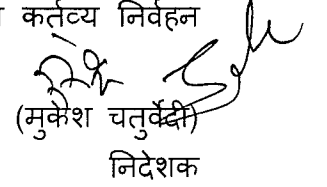 कर्तव्य निर्वहन
(मुकेश चतुर्वेदी)
निदेशक